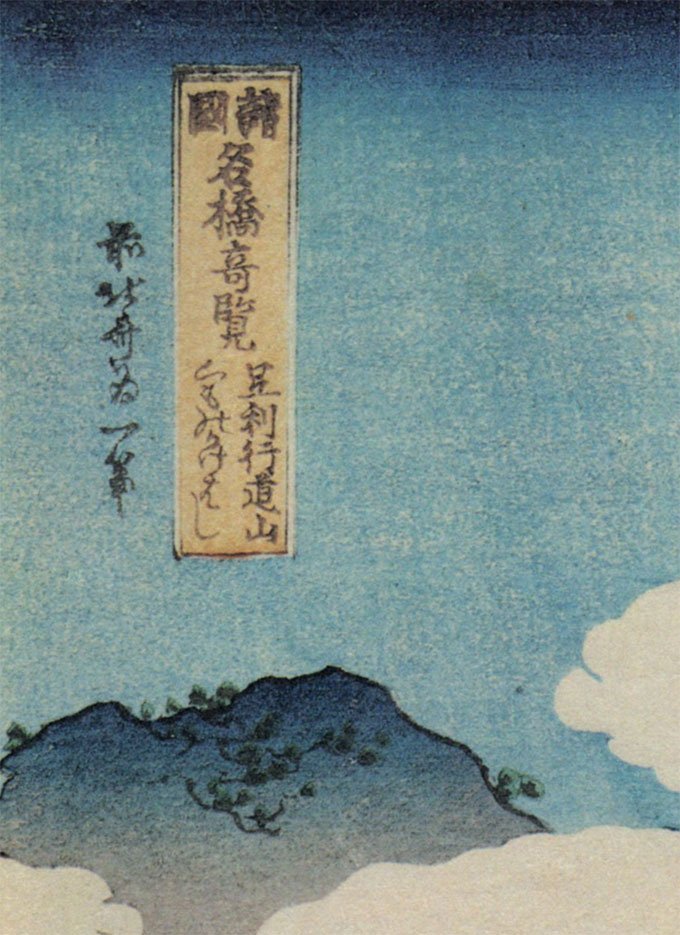 諸國
名橋奇覧
足利行道山
くものかけはし
前北斎為一筆